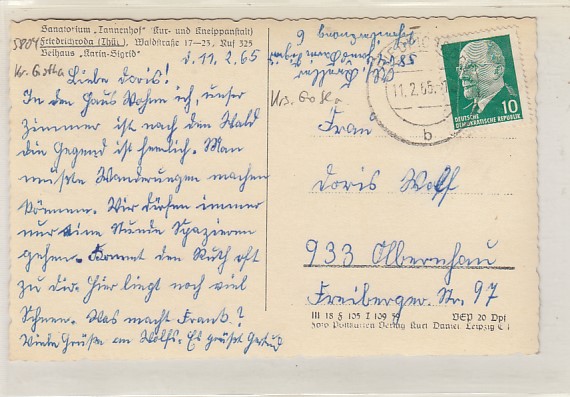 Sanatorium „Tannenhof" (Kur- und Kneippanstalt)
5804 Friedrichroda (Thür.), Waldstraße 17—23, Ruf 325
Beihaus „Karin-Sigrid"
d. 11. 2. 65
Kr. Gotha
Liebe Doris!
In den Haus wohne ich, unser
Zimmer ist nach den Wald
die Gegend ist herrlich. Man
müßte Wanderungen machen
können. Wir dürfen immer
nur eine Stunde Spazieren
gehen. Kommt den Ruth oft
zu dir. Hier liegt noch viel
Schnee. Was macht Frank?
Viele Grüße an Wolfs. Es grüßt Gertrud
11. 2. 65
b
10
DEUTSCHE
DEMOKRATISCHE REPUBLIK
Frau
Doris Wolf
933 Olbernhau
Freiberger Str. 97
III 18 5 105 I 109 59 VEP 20 Dpf
Foto Postkarten Verlag Kurt Daniel, Leipzig C 1